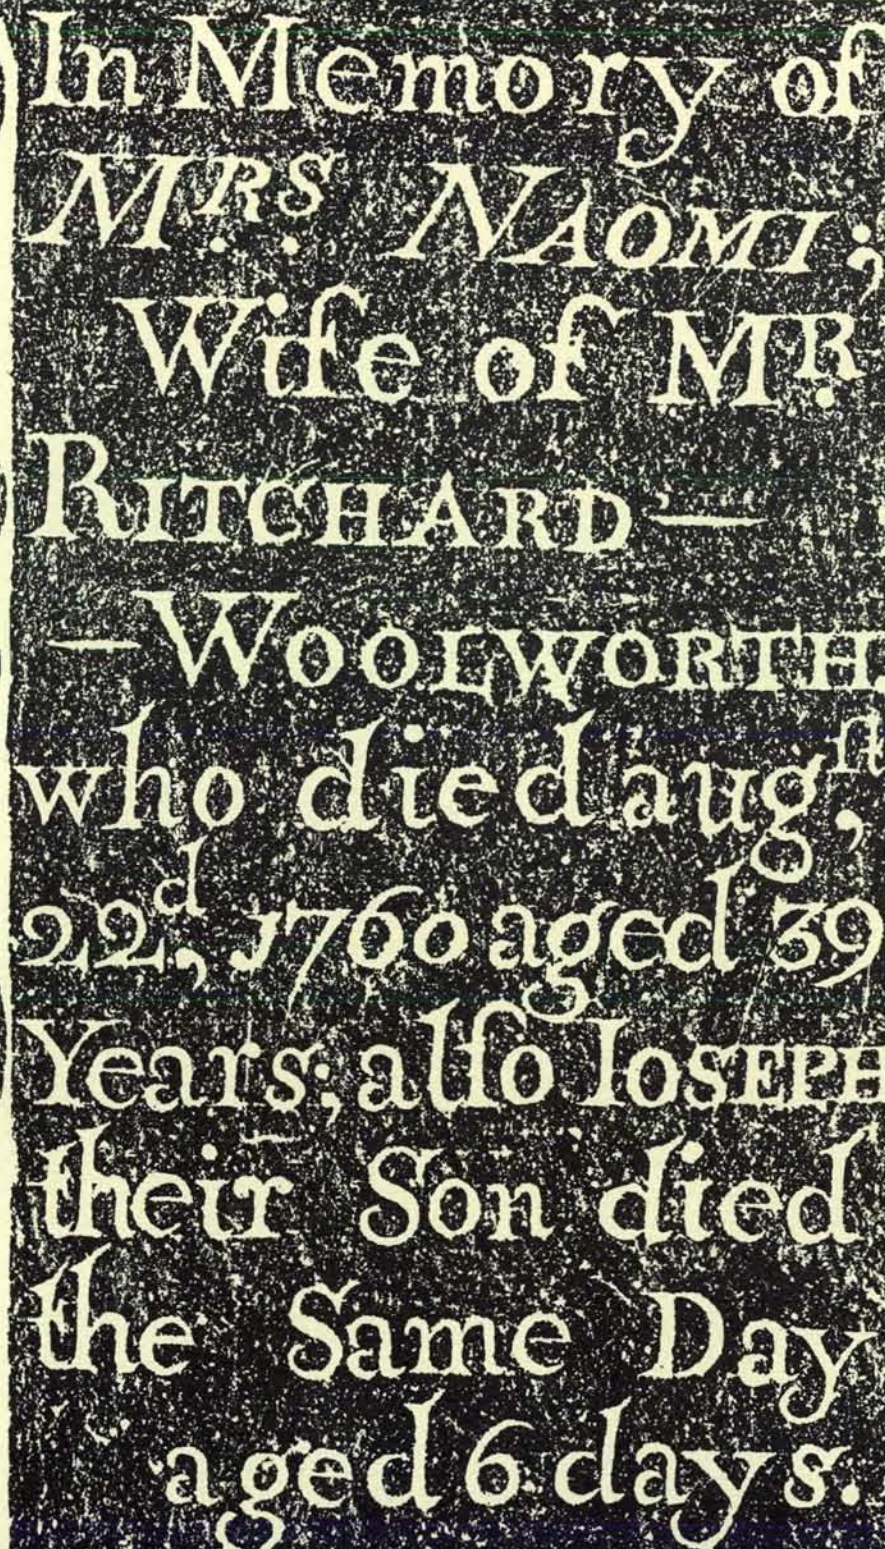 In Memory of
Mʀˢ NAOMI;
Wife of Mᴿ
RITCHARD—
—WOOLWORTH,
who died augſt,
22d, 1760 aged 39
Years; alſo IOSEPH
their Son died
the Same Day
aged 6 days.